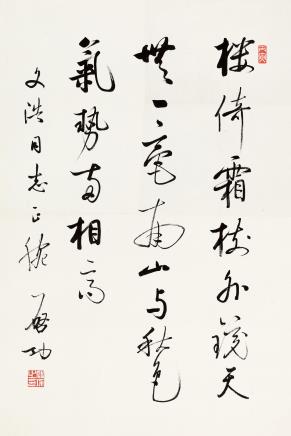 楼倚霜樹外鏡天
無一毫南山与秋色
氣勢兩相高
文洪同志正腕 啓功